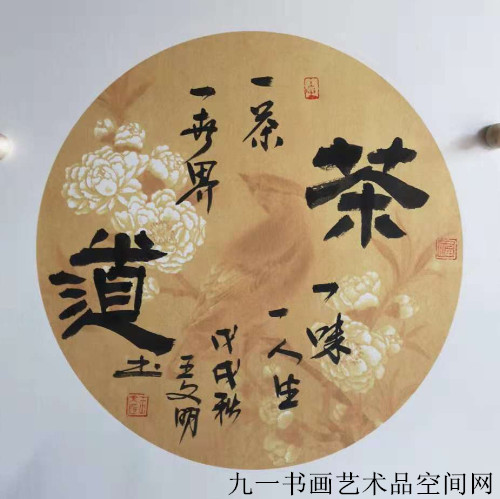 茶
道
一茶
一世界
一味
一人生
戊戌秋
王文明
书
九一书画艺术品空间网